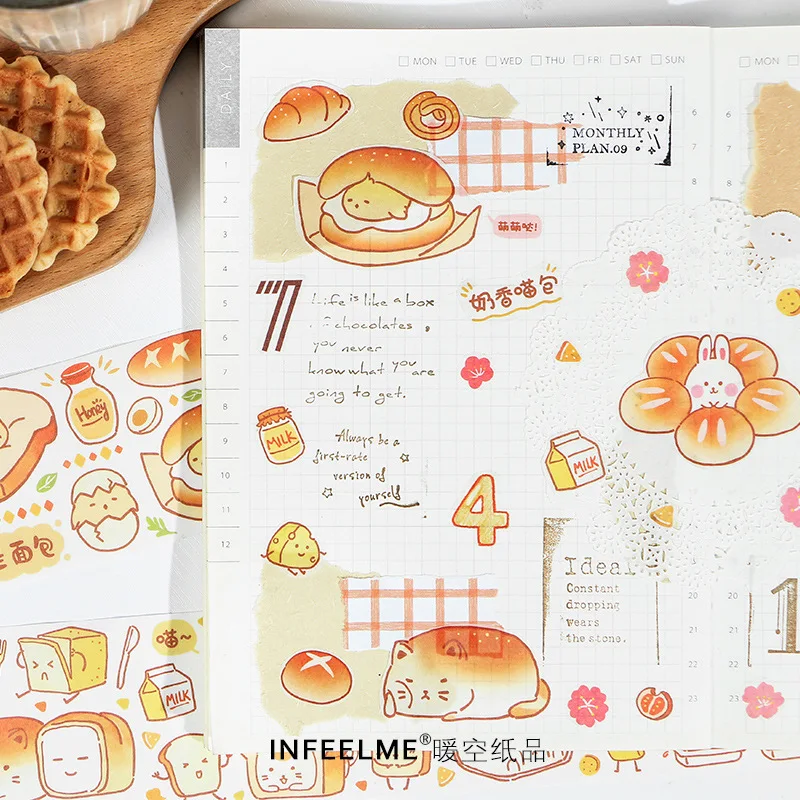 DAILY
MON TUE WED THU FRI SAT SUN
MON
MONTHLY
PLAN.09
萌萌哒!
奶香喵包
7
Life is like a box
of chocolates,
you never
know what you are
going to get.
MILK
Always be a
first-rate
version of
yourself
MILK
4
Ideal
Constant
dropping
wears
the stone.
1
1
2
3
4
5
6
7
8
9
10
11
12
6
7
8
20
21
22
23
20
21
22
23
Honey
面包
喵~
MILK
INFEELME®暖空纸品